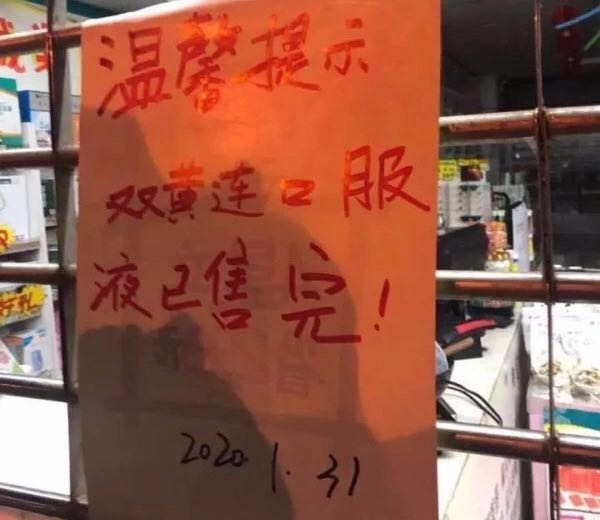 温馨提示
双黄连口服
液已售完!
2020.1.31